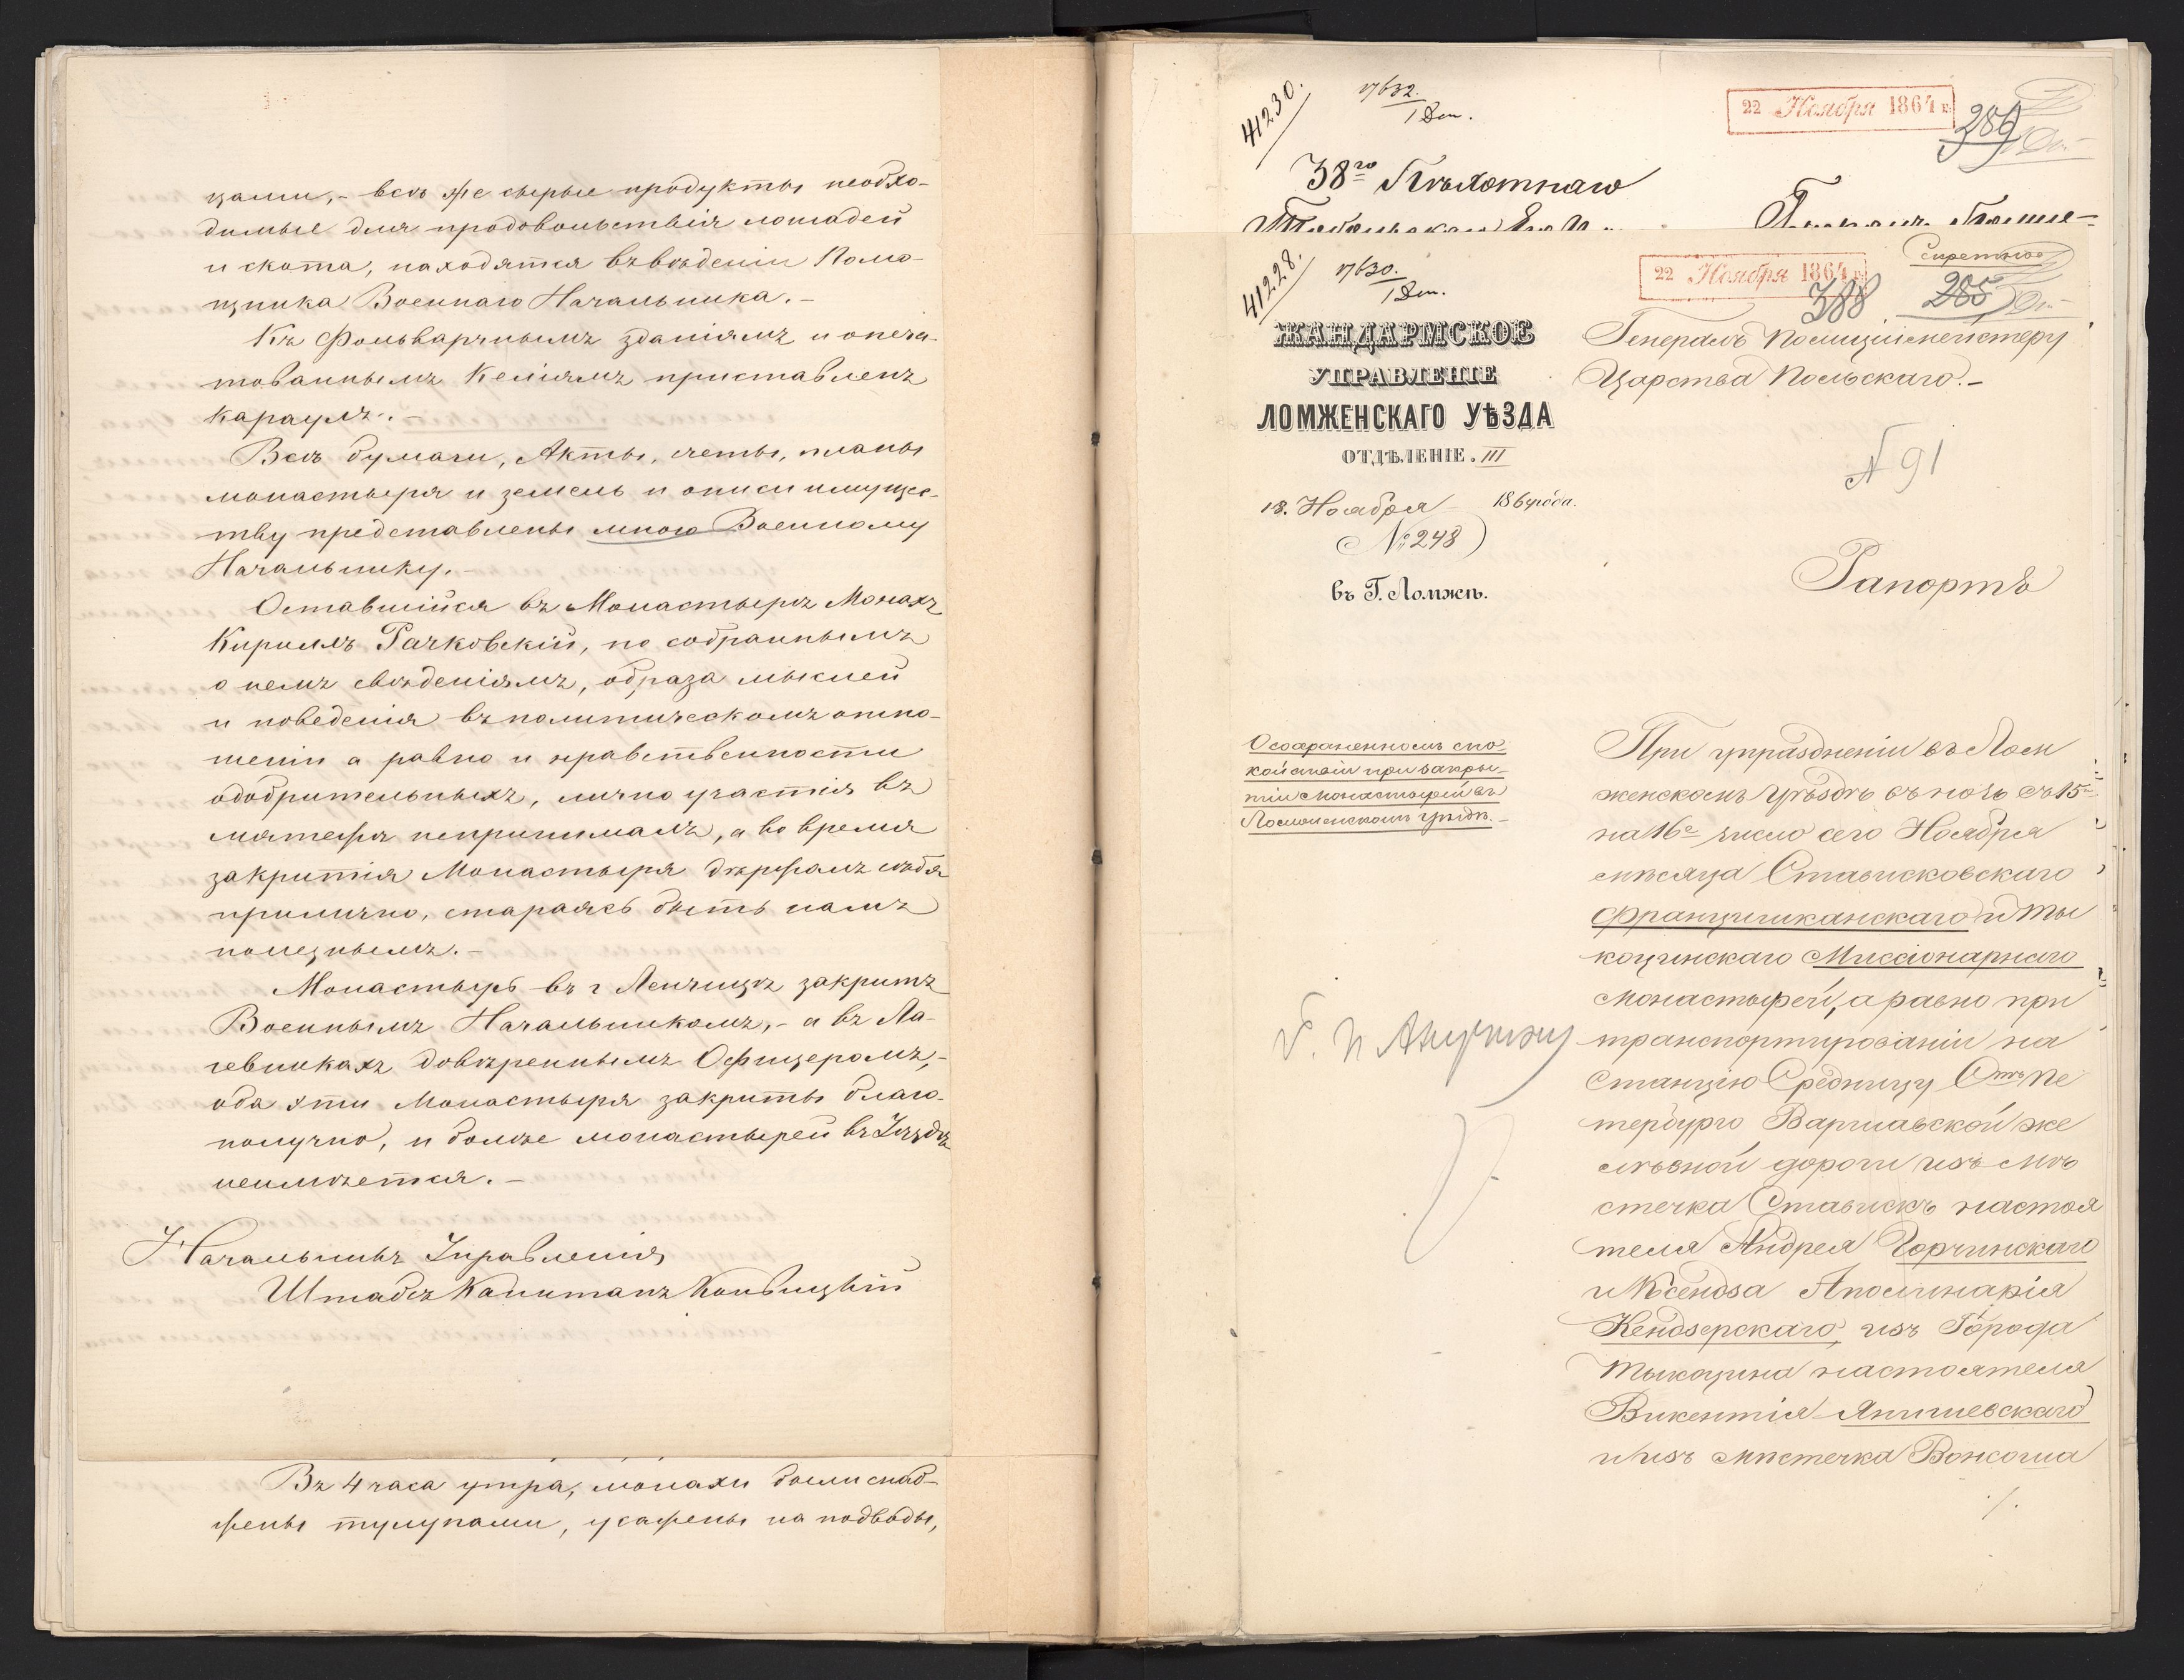 цами,- всѣ же сырые продукты необхо-
димые для продовольствія лошадей
и скота, находятся въ вѣденіи Помо-
щника Военнаго Начальника.-
Къ Фольварчнымъ зданіямъ и опеча-
тованнымъ Келіямъ приставленъ
караулъ.-
Всѣ бумаги, Акты, счеты, планы
монастыря и земель и описи имуще-
тву представлены мною Военному
Начальнику.-
Оставшійся въ Монастырѣ Монахъ
Кириллъ Рачковскій, по собраннымъ
о немъ свѣденіямъ, образа мыслей
и поведенія въ политическомъ отно-
шеніи а равно и нравственности
одобрительныхъ, лично участія въ
мятежѣ непринималъ, а во время
закритія Монастыря держалъ себя
прилично, стараясь быть намъ
полезнымъ.-
Монастырь въ г Ленчицѣ закритъ
Военнымъ Начальникомъ,- а въ Ла-
гевникахъ довѣреннымъ Офицеромъ,-
оба эти Монастыря закриты благо-
получно, и болѣе монастырей въ Уѣздѣ
неимѣется.-
Начальникъ Управленія
Штабсъ Капитанъ
Въ 4 часа утра, монахи были снаб-
жены тулупами, усажены на подводы,
41230.
17632.
1 Дек.
22 Ноября 1864 г.
389
38го Пѣхотнаго
41228.
17630.
1 Дек.
22 Ноября 1864 г.
Секретно
388
285
ЖАНДАРМСКОЕ
УПРАВЛЕНІЕ
ЛОМЖЕНСКАГО УѢЗДА
ОТДѢЛЕНІЕ. III
18. Ноября 1864 года.
№ 248
въ Г. Ломжѣ.
Генералъ Полиціймейстеру
Царства Польскаго.-
№ 91
Рапортъ
О сохраненномъ спо-
койствіи при закры-
тіи монастырей въ
Ломженскомъ уѣздѣ.-
При упраздненіи въ Лом
женскомъ Уѣздѣ въ ночь съ 15го
на 16е число сего Ноября
мѣсяца Стависковскаго
Францишканскаго и Ты
коцинскаго Миссіонарнаго
монастырей, а равно при
транспортированіи на
Станцію Средницу Стъ Пе
тербурго Варшавской же
лѣзной дороги изъ мѣ
стечка Ставискъ настоя
теля Андрея Горчинскаго
и Ксендза Аполинарія
Кендзерскаго, изъ Города
Тыкоцина настоятеля
Викентія Янишевскаго
и изъ мѣстечка Вонсоша
Г. П. Анучину
./.